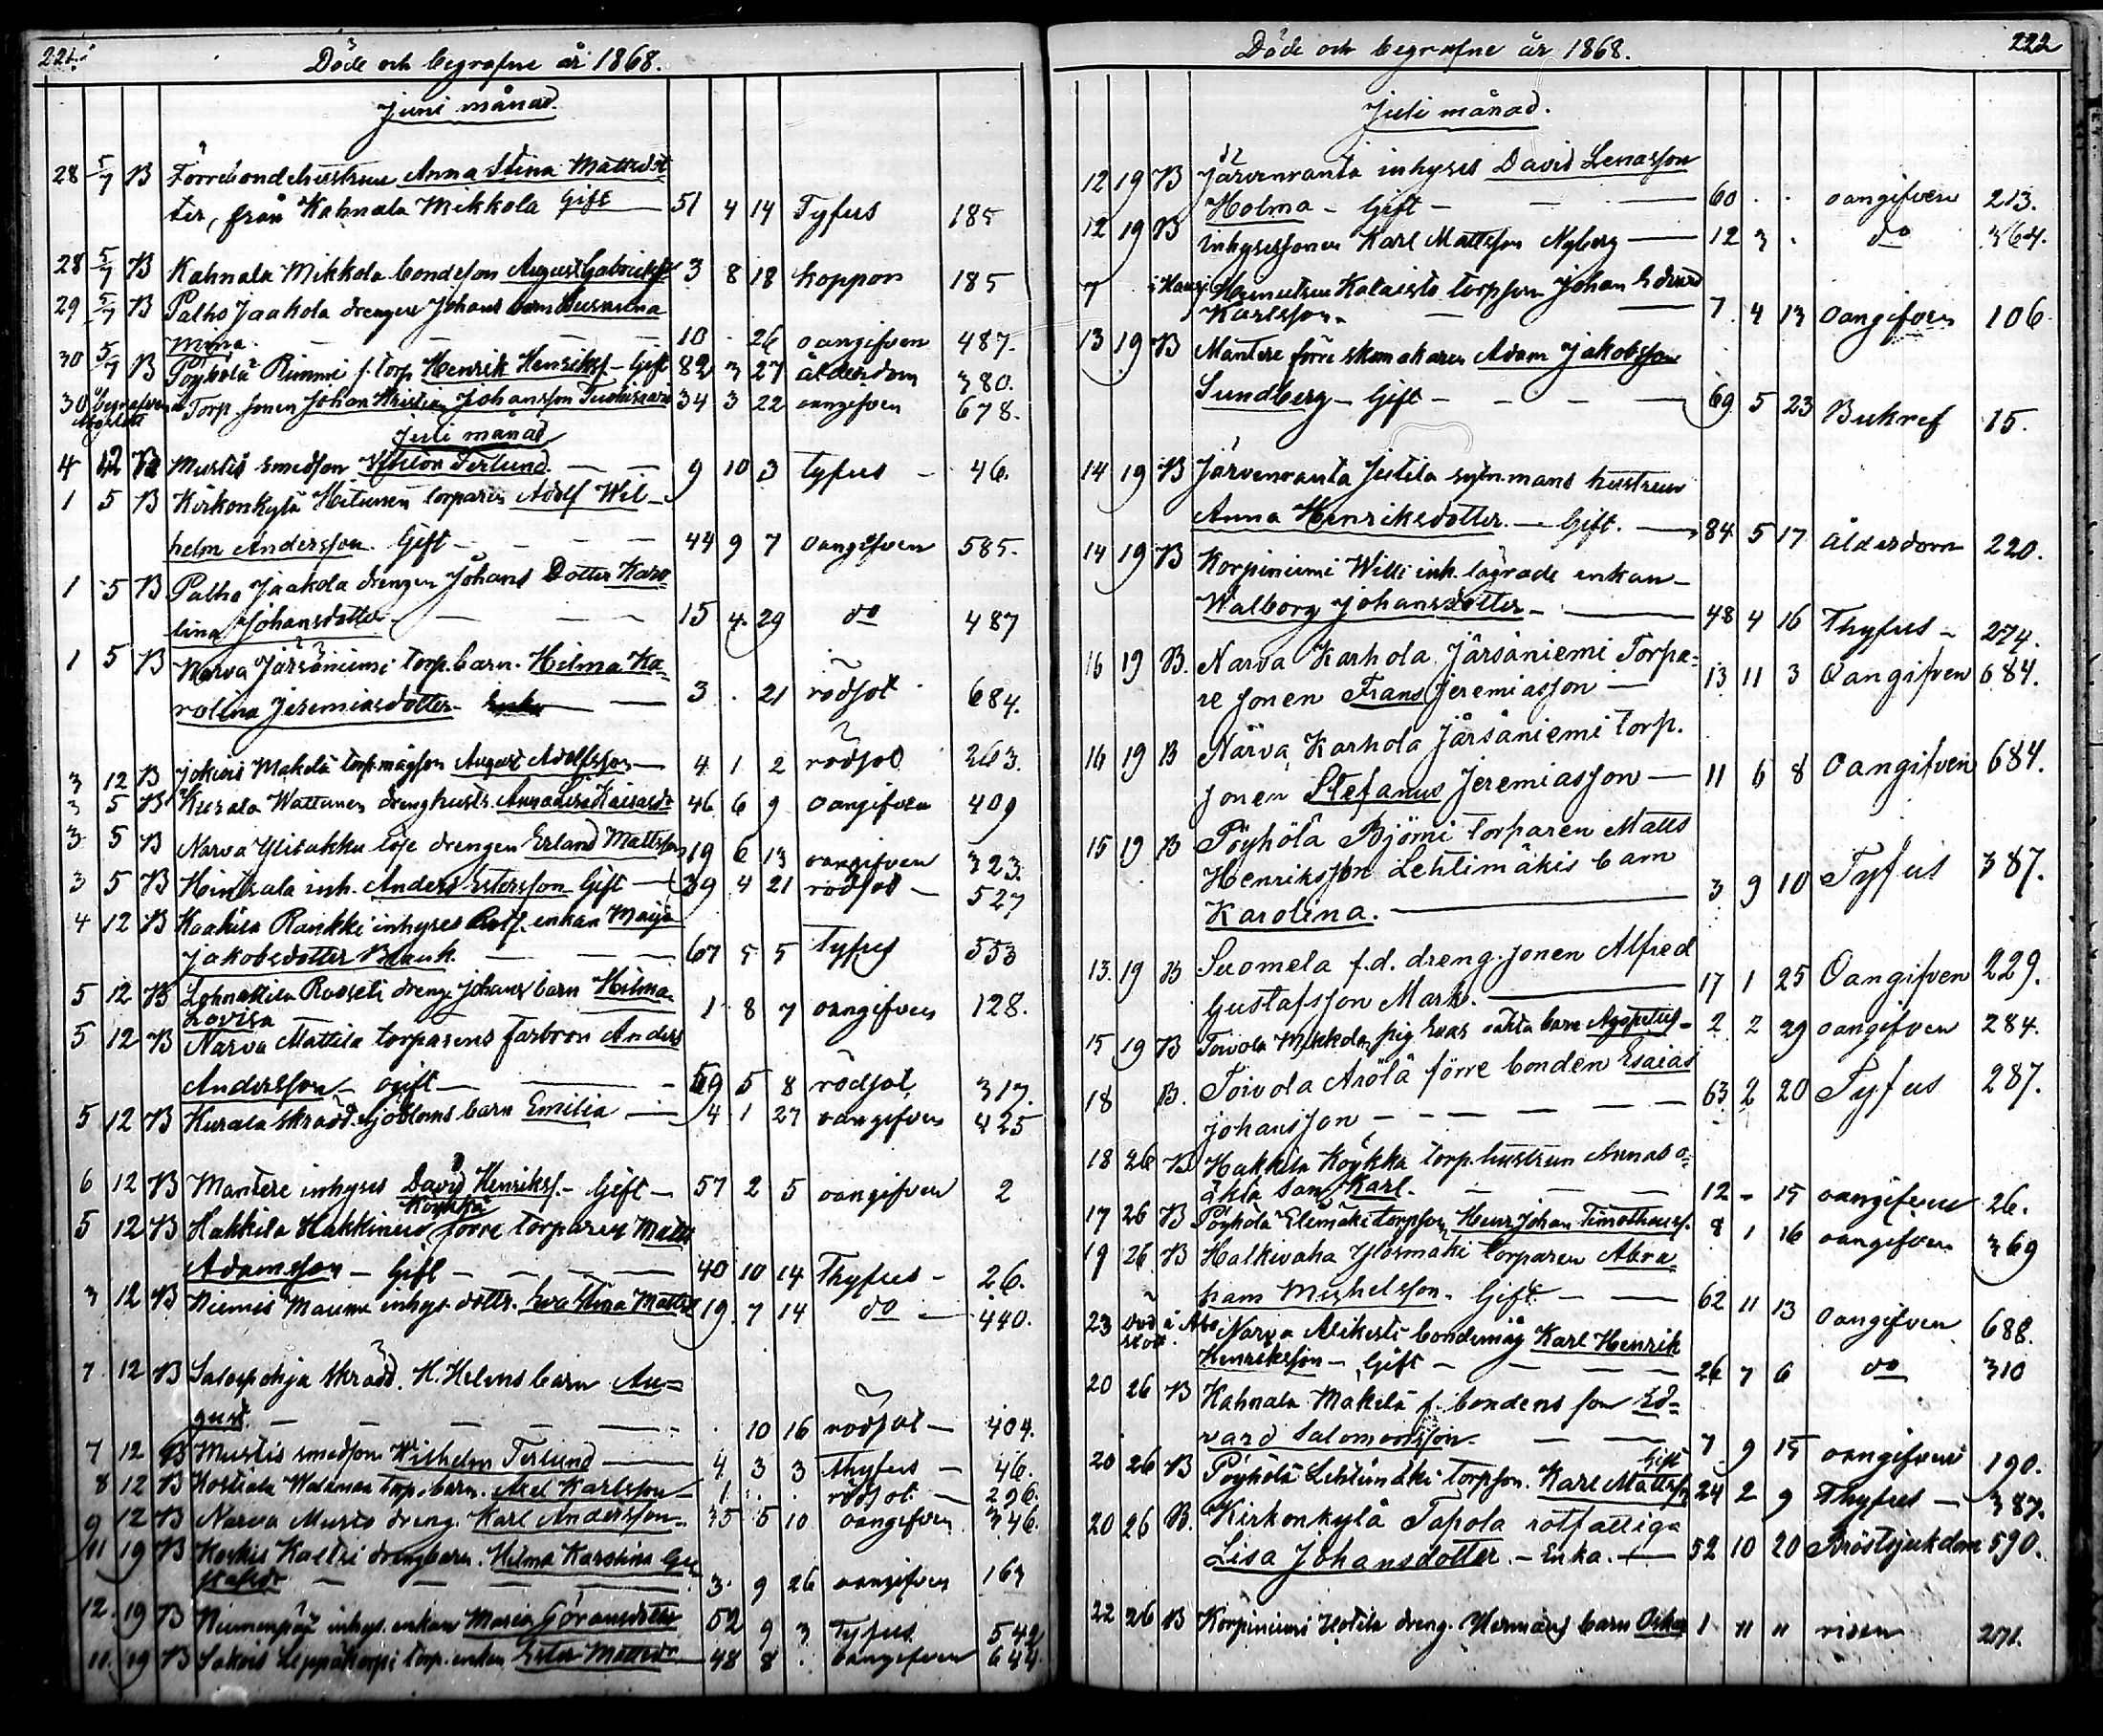 221.
Döde och begrafne år 1868.
Juni månad.
28 5/7 B Förre bondehustrun Anna Stina Mattsdot-
ter, från Kahnala Mikkola Gift 51 4 14 Tyfus 185
28 5/7 B Kahnala Mikkola bondeson August Gabrielss. 3 8 18 koppor 185
29 5/7 B Palho Jaakola drengen Johans barn Susanna
Mina 10 26 oangifven 487.
30 5/7 B Pöyhölä Rimmi f. torp. Henrik Henrikss. - Gift 82 3 27 ålderdom 380.
30 begrafven Torp. sonen Johan Kristian Johansson 34 3 22 oangifven 678.
Juli månad
4 12 B Mustis smedson Terlund - - 9 10 3 tyfus - 46.
1 5 B Kirkonkylä torparen Adolf Wil-
helm Andersson. Gift - - - - 44 9 7 oangifven 585.
1 5 B Palho Jaakola drengen Johans Dotter Karo-
lina Johansdotter - - - 15 4 29 do 487
1 5 B Narva Järsäniemi torp. barn. Helma Ka-
rolina Jeremiasdotter - 3 . 21 rödsot 684.
3 12 B Jokiois Mäkelä torp.mågson August Adolfsson 4 1 2 rödsot 263.
3 5 B Kurala Wattunen drenghustr. Anna Lisa 46 6 9 oangifven 409
3 5 B Narva Ylitakku löse drengen Erland Mattsson 19 6 13 oangifven 323.
3 5 B Hintsala inh. Anders Gift 39 4 21 rödsot - 527
4 12 B Raukki inhyses enkan Maija
Jakobsdotter Blank. - - - 67 5 5 Tyfus 553
5 12 B dreng Johans barn Hilma
Lovisa 1 8 7 oangifven 128.
5 12 B Narva Mattila torparens farbror Anders
Andersson - ogift - 59 5 8 rödsot 317.
5 12 B Kurala skrädd. Sjöbloms barn Emilia 4 1 27 oangifven 425
6 12 B Mantere inhyses David Henrikss. - Gift - 57 2 5 oangifven 2
Köykkä
5 12 B Hakkila Hakkinens förre torparen Matts
Adamsson - Gift - - - 40 10 14 Thyfus - 26.
3 12 B Niemis inhys. dottr. Eva Stina Mattsd. 19 7 14 do 440.
7 12 B Salospohja skrädd. H. Helms barn Au-
gust. - - - - . 10 16 rödsot - 404.
7 12 B Mustis smedson Wilhelm Terlund 4 3 3 thyfus - 46.
8 12 B torp. barn. Axel Karlsson 1 . . rödsot - 296.
9 12 B Narva dreng. Karl Andersson 35 5 10 oangifven 346.
11 19 B drengbarn. Hilma Karolina Gu-
stafsdr - - - 3 9 26 oangifven 163
12. 19 B Niemenpää inhys. enkan Maria Göransdotter 52 9 3 Tyfus 542
11. 19 B Leppäkorpi torp. enkan Ester Mattsdr 48 8 . oangifven 644.
Döde och begrafne år 1868. 222
Juli månad.
12 19 B Järvenranta inhyses David Lenasson
Holma - Gift - - 60 . . oangifven 213.
12 19 B Inhysessonen Karl Mattsson Nyberg 12 3 . do 364.
7 i Hausj. Kalaisto torpson Johan Edvard
Karlsson. - 7 4 13 Oangifven 106
13 19 B Mantere förre skomakaren Adam Jakobsson
Sundberg - Gift - - - 69 5 23 Bukref 15.
14 19 B Järvenranta Jutila sytn.mans hustrun
Anna Henriksdotter. - Gift. 84 5 17 ålderdom 220.
14 19 B Korpiniemi Willi inh. lägrade enkan -
Walborg Johansdotter - 48 4 16 Thyfus - 274.
16 19 B. Narva Karhola Järsäniemi Torpa-
re sonen Frans Jeremiasson 13 11 3 Oangifven 684.
16 19 B Närva Karhola Järsäniemi torp.
sonen Stefanus Jeremiasson 11 6 8 Oangifven 684.
15 19 B Pöyhölä Björni torparen Matts
Henriksson Lehtimäkis barn
Karolina. 3 9 10 Tyfus 387.
13. 19 B Suomela f.d. dreng sonen Alfred
Gustafsson Mark. 17 1 25 Oangifven 229.
15 19 B Toivola Mikkola pig. Evas oäkta barn Agapetus 2 2 29 oangifven 284.
18 B. Toivola Arölä förre bonden Esaias
Johansson - - - - 63 2 20 Tyfus 287.
18 26 B Hakkila Köykkä torp. hustrun Annas o-
äkta son Karl. - - - 12 - 15 oangifven 26.
17 26 B Pöyhölä Elimäki torpson Henr. Johan Timotheuss. 8 1 16 oangifven 369
19 26 B Halkivaha Ylösmäki torparen Abra-
ham Michelsson. Gift - 62 11 13 Oangifven 688.
23 död i Åbo Narva Alikesti bondemåg Karl Henrik
Henriksson - Gift - 26 7 6 do 310
20 26 B Kahnala Mäkelä f. bondens son Ed-
vard Salomonsson. - 7 9 15 oangifven 190.
Gift
20 26 B Pöyhölä Lehtimäki torpson. Karl Mattss. 24 2 9 Thyfus - 387.
20 26 B. Kirkonkylä Tapola rotfattiga
Lisa Johansdotter. - Enka. - 52 10 20 Bröstsjukdom 590.
22 26 B Korpiniemi Uotila dreng. Hermans barn Oskar 1 11 11 risen 271.